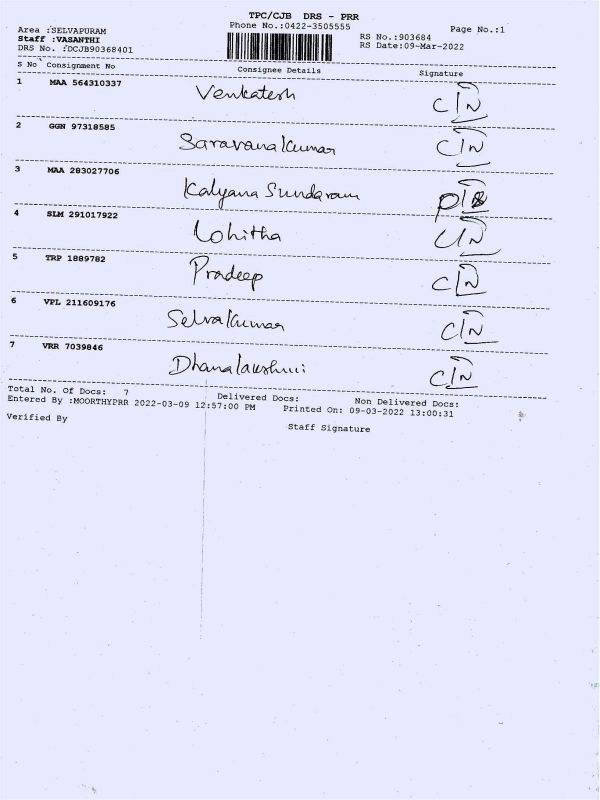 TPC/CJB DRS - PRR
Area :SELVAPURAM Phone No.:0422-3505555 Page No.:1
Staff :VASANTHI RS No.:903684
DRS No. :DCJB90368401 RS Date:09-Mar-2022
S No Consignment No Consignee Details Signature
1 MAA 564310337 Venkatesh
2 GGN 97318585 Saravanakumar
3 MAA 283027706 Kalyana Sundaram
4 SLM 291017922 Lohitha
5 TRP 1889782 Pradeep
6 VPL 211609176 Selvakumar
7 VRR 7039846 Dhanalakshmi
Total No. Of Docs: 7 Delivered Docs: Non Delivered Docs:
Entered By :MOORTHYPRR 2022-03-09 12:57:00 PM Printed On: 09-03-2022 13:00:31
Verified By Staff Signature